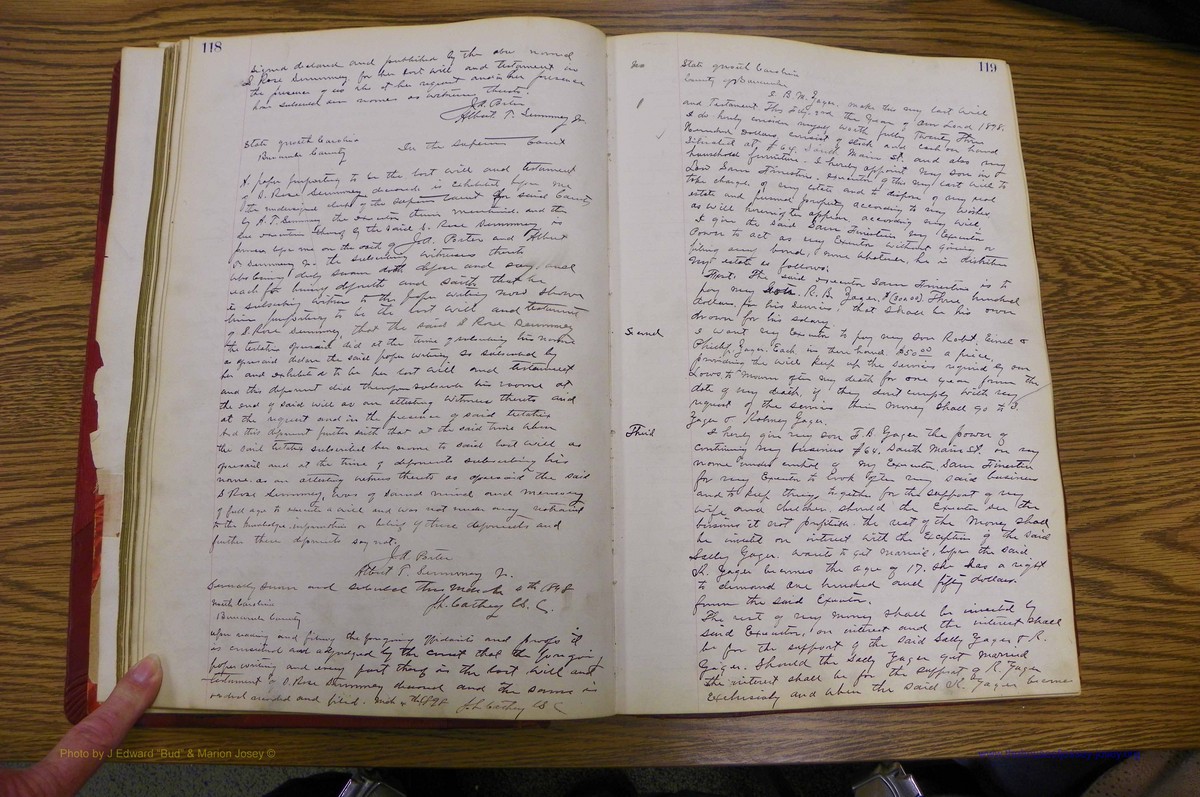 118
Signed declared and published by the above named
S Rose Summey for her last will and testament in
the presence of us who at her request and in her presence
have subscribed our names as witness thereto.
J.A. Porter
Albert T. Summey Jr.
State of North Carolina
Buncombe County
In the Superior Court
A paper purporting to be the last will and testament
of S. Rose Summey deceased is exhibited before me
the undersigned clerk of the Superior Court for said County
by A.T. Summey the Executor therein mentioned and the
due execution thereof by the said S. Rose Summey is
proven before me on the oath of J.A. Porter and Albert
T. Summey Jr. the subscribing witnesses thereto
who being duly sworn doth depose and say, and
each for himself deposeth and saith that he
is subscribing witness to the paper writing now shown
him purporting to be the last will and testament
of S. Rose Summey that the said S Rose Summey
the testatrix aforesaid did at the time of subscribing his name
as aforesaid declare the said paper writing so subscribed by
her and exhibited to be her last will and testament
and this deponent did thereupon subscribe his name at
the end of said will as an attesting witness thereto and
at the request and in the presence of said testatrix
And this deponent further saith that at the said time when
the said testatrix subscribed her name to said last will as
aforesaid and at the time of deponents subscribing his
name as an attesting witness thereto as aforesaid the said
S Rose Summey was of sound mind and memory
of full age to execute a will and was not under any restraint
to the knowledge information or belief of these deponents and
further these deponents say not.
J.A. Porter
Albert T. Summey Jr.
Severally sworn and subscribed this March 4th 1898
J.L. Cathey C.S.C.
North Carolina
Buncombe County
upon reading and filing the foregoing affidavits and proofs it
is considered and adjudged by the court that the foregoing
paper writing and every part thereof is the last will and
testament of S. Rose Summey deceased and the same is
ordered recorded and filed. Mch 4th 1898 J.L. Cathey C.S.C.
119
State of North Carolina
County of Buncombe
I B. M. Zager, make this my last will
and Testament. This day and the year of our Lord 1898.
I do hereby consider myself worth fully Twenty Three
Hundred Dollars, consist of stock and cash on hand
situated at #64. South Main St. and also my
household furniture. I hereby appoint my son in
Law Sam Finestein, executor of this my last will to
take charge of my estate and to dispose of my real
estate and personal property according to my wishes
as will hereinafter appear, according my will,
I give the said Sam Finestein my Executor
Power to act as my Executor without giving or
filing any bonds, some whatever, he is
my estate as follows:
First. The said executor Sam Finestein is to
pay my R. B. Zager. $(300.00) Three hundred
dollars, for his service, that shall be his own
drawn for his salary.
Second
I want my Executor to pay my son Robt, Emil &
Philip Zager. Each in there hand $50.00 a piece,
providing he will keep up the services required by our
Laws, to Mourn after my death for one year from the
date of my death. if they don't comply with my
request of the services their money shall go to S.
Zager & Zager.
Third
I hereby give my son J.B Zager the power of
continuing my business #64. South Main St. on my
name under control of my Executor Sam Finestein
for my Executor to look after my said business
and to keep things together for the support of my
wife and children. should the Executor see the
business is not profitable. the rest of the Money shall
be invested on interest with the Exception of the said
Sally Zager. wants to get married, before the said
R. Zager becomes the age of 17. she has a right
to demand one hundred and fifty dollars.
from the said Executor.
The rest of my money shall be invested by
said Executor, on interest and the interest shall
be for the support of the said Sally Zager & R.
Zager. Should the Sally Zager get married
the interest shall be for the support of R Zager
Exclusively and when the said R. Zager becomes
Photo by J Edward "Bud" & Marion Josey ©